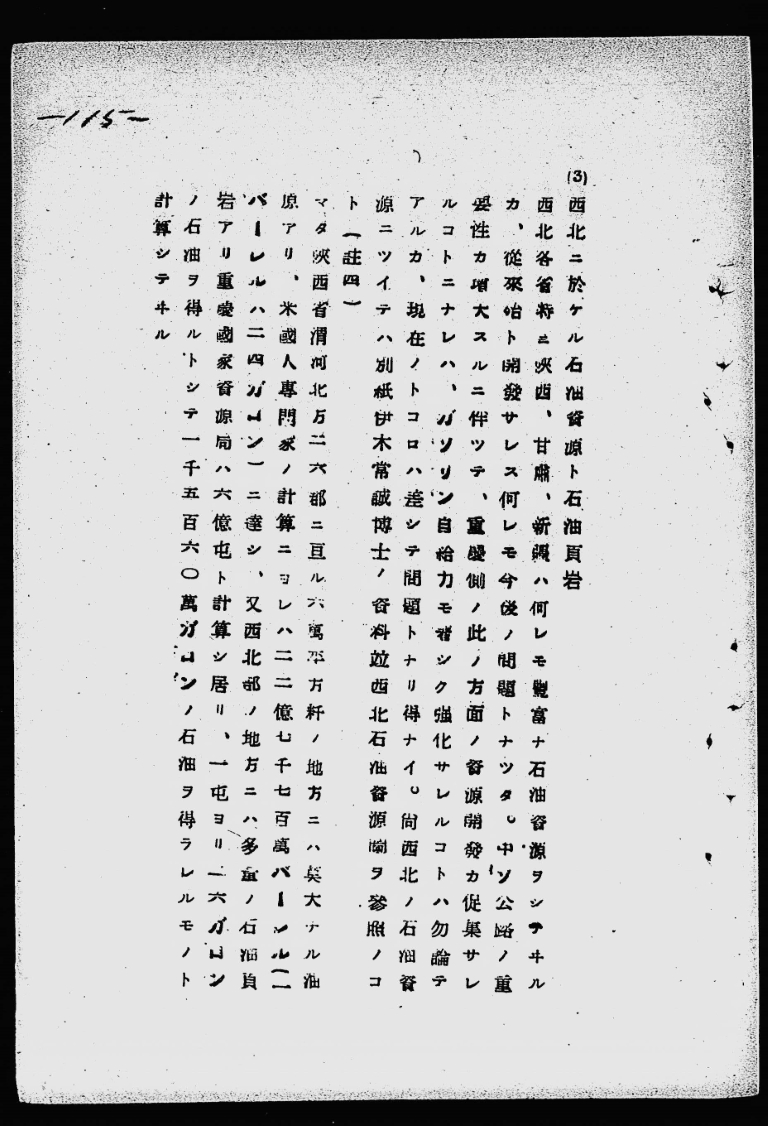 -115-
(3) 西北ニ於ケル石油資源ト石油頁岩
西北各省特ニ陝西、甘肅、新疆ハ何レモ豐富ナ石油資源ヲシテヰル
カ、從來殆ト開發サレス何レモ今後ノ問題トナツタ。中ソ公路ノ重
要性カ増大スルニ伴ツテ、重慶側ノ此ノ方面ノ資源開發カ促集サレ
ルコトニナレハ、ガソリン自給力モ著シク强化サレルコトハ勿論テ
アルカ、現在ノトコロハ差シテ問題トナリ得ナイ。尚西北ノ石油資
源ニツイテハ別紙伊木常誠博士ノ資料竝西北石油資源圖ヲ參照ノコ
ト（註四）
マタ陝西省渭河北方二六郡ニ亘ル六萬平方粁ノ地方ニハ莫大ナル油
原アリ、米國人專門家ノ計算ニヨレハ二二億七千七百萬バーレル(一
バーレルハ二四ガロン)ニ達シ、又西北部ノ地方ニハ多量ノ石油頁
岩アリ重慶國家資源局ハ六億屯ト計算シ居リ、一屯ヨリ二六ガロン
ノ石油ヲ得ルトシテ一千五百六〇萬ガロンノ石油ヲ得ラレルモノト
計算シテヰル